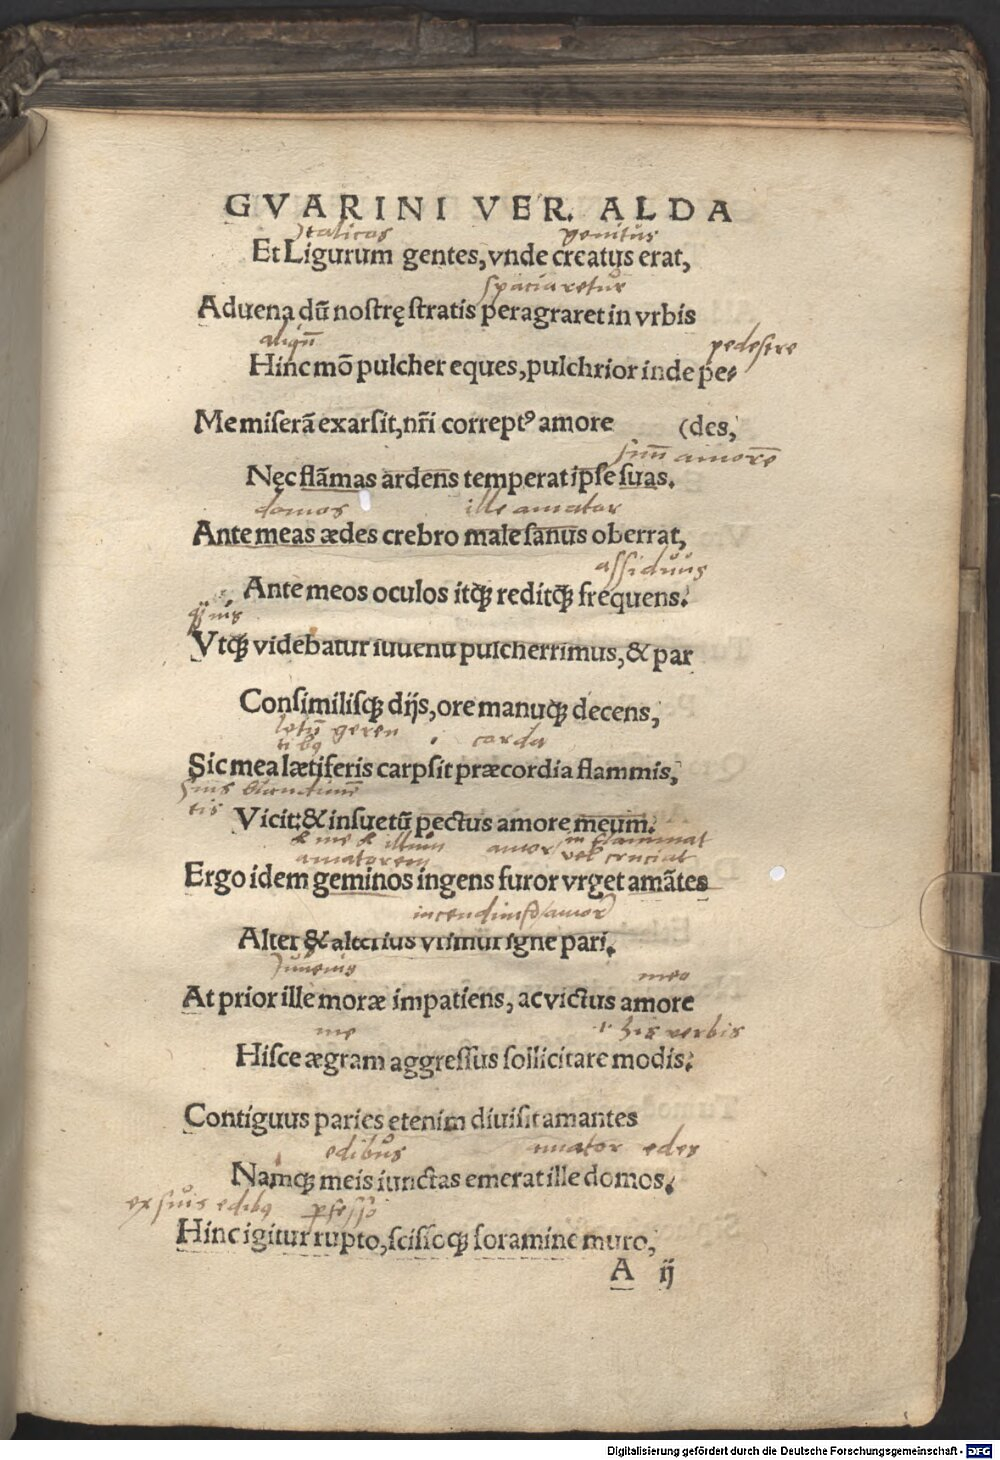 GVARINI VER. ALDA
Italicas genitus
Et Ligurum gentes, vnde creatus erat,
spaciaretur
Aduena dū nostrę stratis peragraret in vrbis
aliqn̄ pedestre
Hinc mō pulcher eques, pulchrior inde pe⸗
Me miserā exarsit, nr̄i correptꝰ amore (des,
suū amorē
Nęc flāmas ardens temperat ipse suas.
domos ille amator
Ante meas ædes crebro male sanus oberrat,
assiduus
Ante meos oculos itq̨ reditq̨ frequens.
Vtq̨ videbatur iuuenū pulcherrimus, & par
Consimilisq̨ dijs, ore manuq̨ decens,
letū geren
tibꝰ corda
Sic mea lætiferis carpsit præcordia flammis,
Vicit: & insuetū pectus amore meum.
& me & illum amor inflammat
amatorem vel cruciat
Ergo idem geminos ingens furor vrget amātes
Alter & alterius vrimur igne pari.
Juuenis meo
At prior ille moræ impatiens, ac victus amore
me his verbis
Hisce ægram aggressus sollicitare modis.
Contiguus paries etenim diuisit amantes
edibus amator edes
Namq̨ meis iunctas emerat ille domos.
ex suis edibꝰ
Hinc igitur rupto, scissoq̨ foramine muro,
A ij
Digitalisierung gefördert durch die Deutsche Forschungsgemeinschaft - DFG